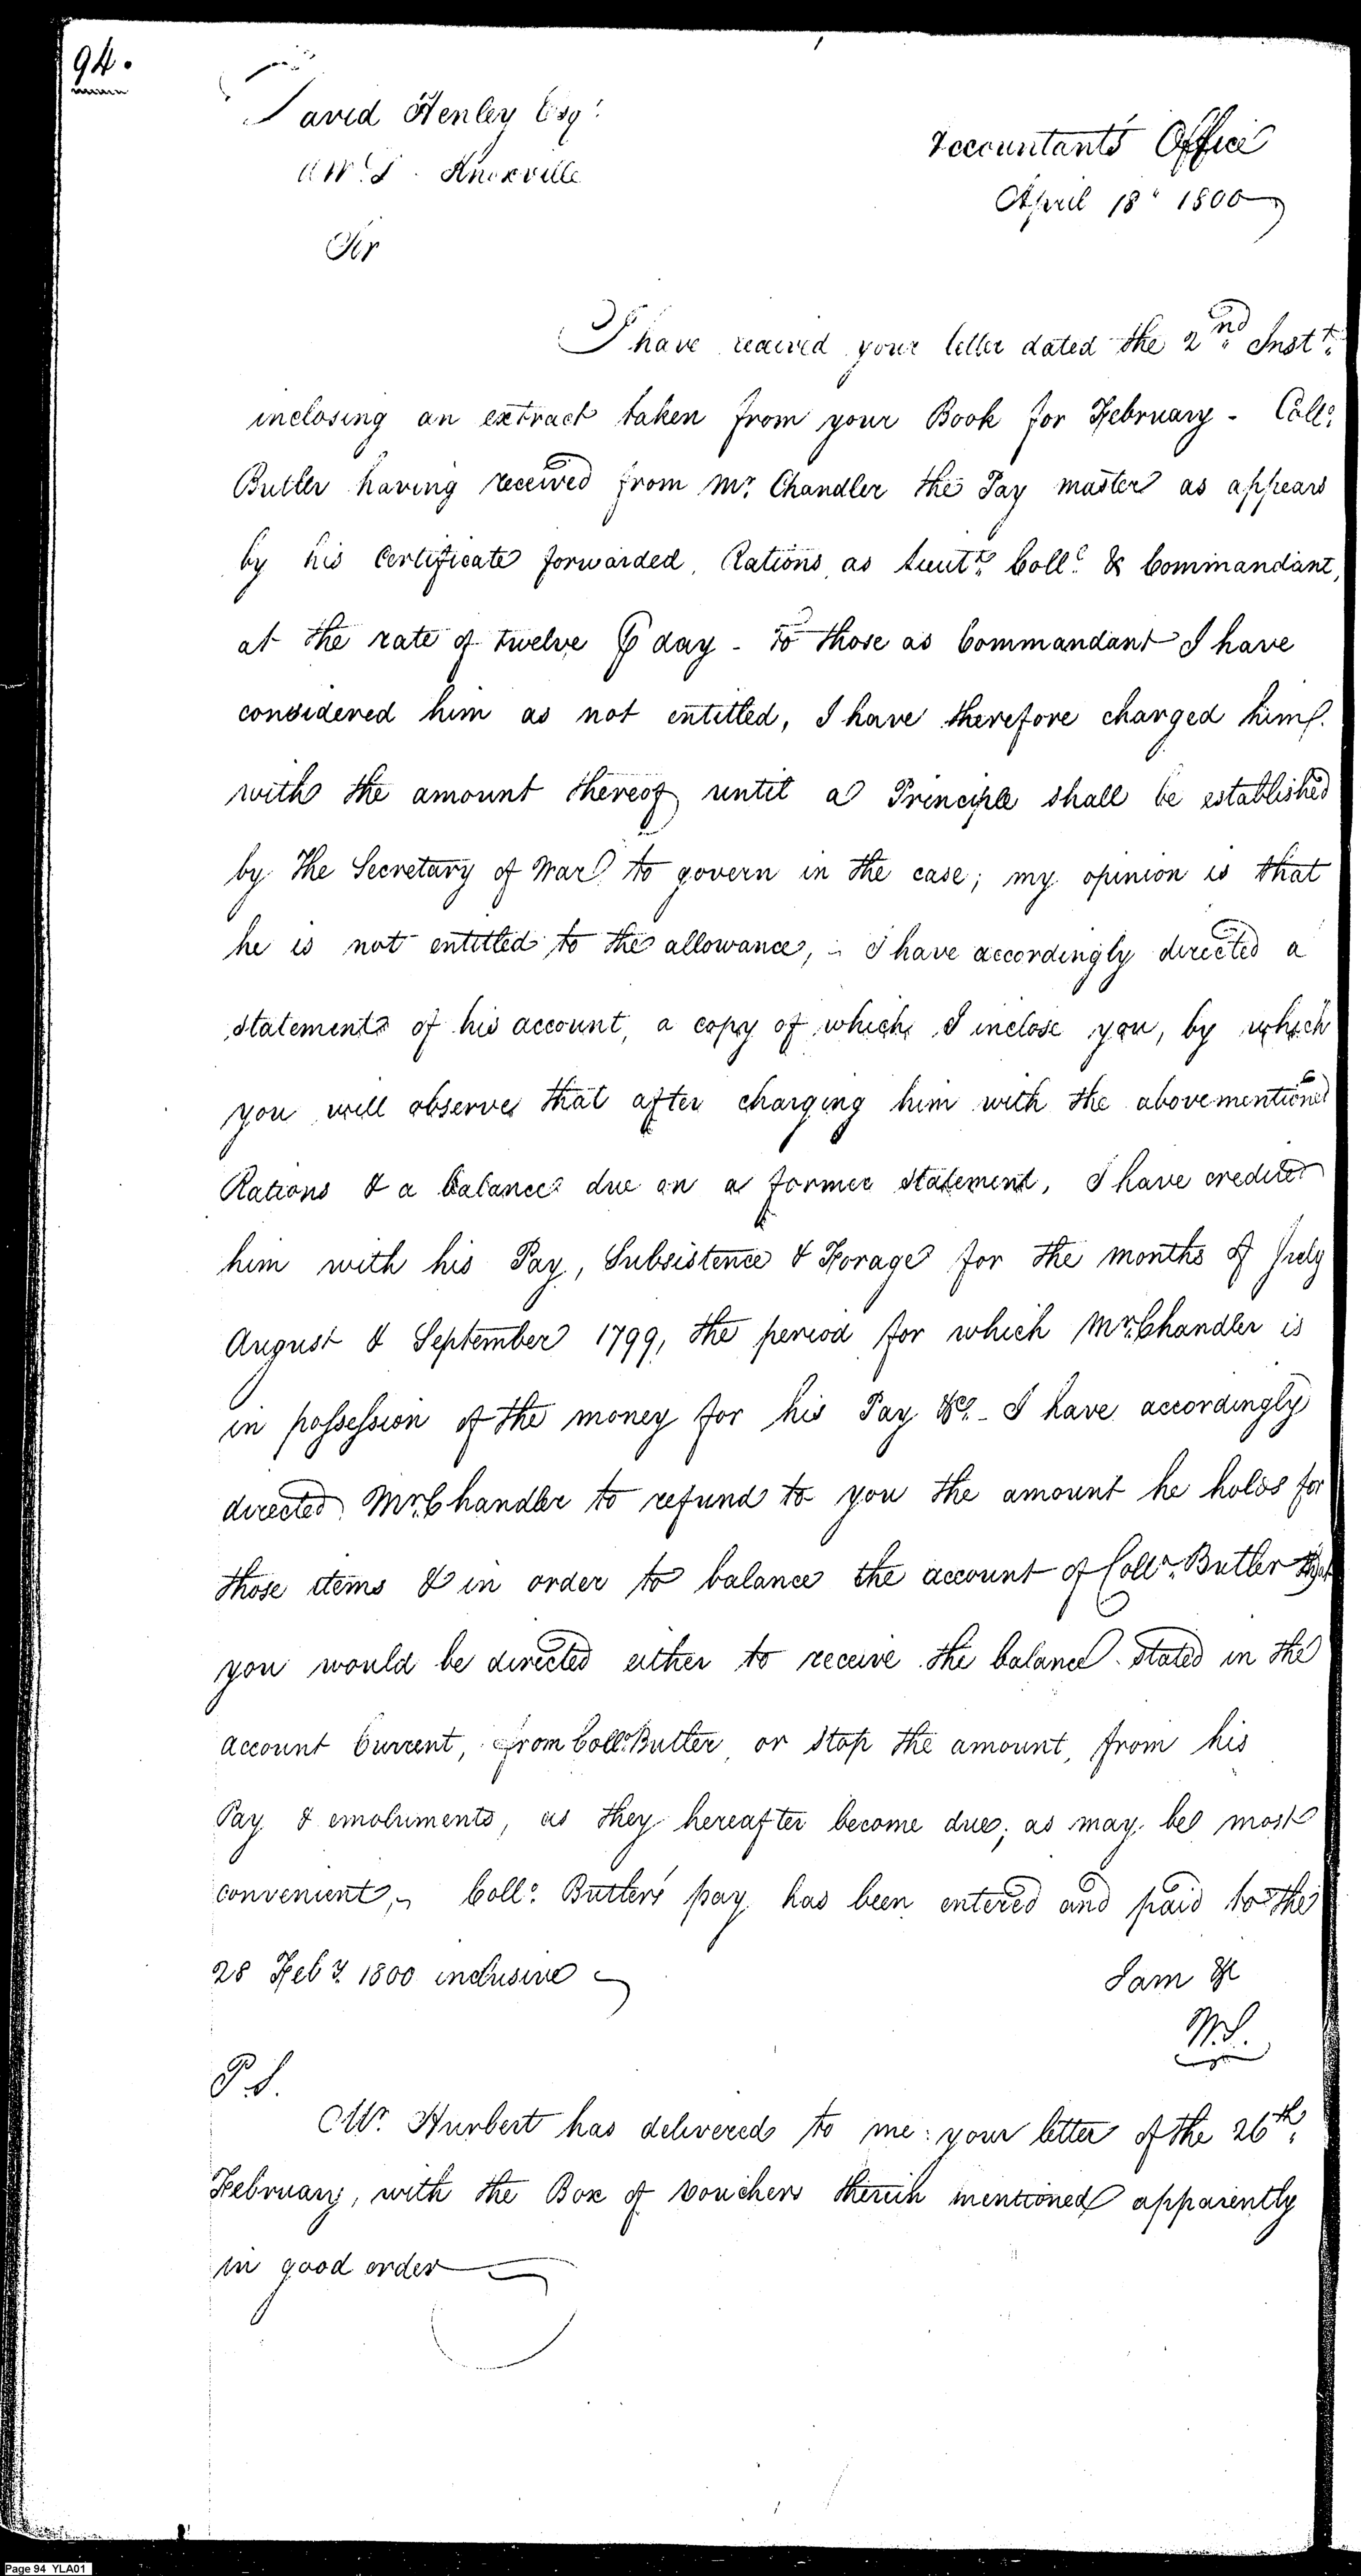 94.
David Henley Esqr.
A W. D. Knoxville
Accountant's Office
April 18th 1800
Sir
I have received your letter dated the 2nd. Instt.
inclosing an extract taken from your Book for February - Coll.
Butler having received from Mr. Chandler the Pay master as appears
by his Certificate forwarded, Rations as Lieutt. Coll. & Commandant,
at the rate of twelve ⅌ day - to those as Commandant I have
considered him as not entitled, I have therefore charged him
with the amount thereof until a Principle shall be established
by the Secretary of War to govern in the case; my opinion is that
he is not entitled to the allowance, - I have accordingly directed a
statement of his account, a copy of which I inclose you, by which
you will observe that after charging him with the abovementioned
Rations & a balance due on a former statement, I have credited
him with his Pay, Subsistence & Forage for the months of July
August & September 1799, the period for which Mr. Chandler is
in possession of the money for his Pay &c. - I have accordingly
directed Mr. Chandler to refund to you the amount he holds for
those items & in order to balance the account of Coll. Butler that
you would be directed either to receive the balance stated in the
account Current, from Coll. Butler or stop the amount, from his
Pay & emoluments, as they hereafter become due, as may be most
convenient, - Coll. Butler's pay has been entered and paid to the
28 Feby. 1800 inclusive
I am &c
W.S.
P.S.
Mr. Hurbert has delivered to me your letter of the 26th.
February, with the Box of vouchers therein mentioned apparently
in good order
Page 94 YLA01